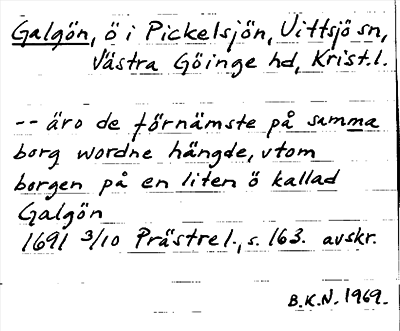 Galgön, ö i Pickelsjön, Vittsjö sn,
Västra Göinge hd, Krist.l.
-- äro de förnämste på samma
borg wordne hängde, utom
borgen på en liten ö kallad
Galgön
1691 3/10 Prästrel., s. 163. avskr.
B.K.N. 1969.